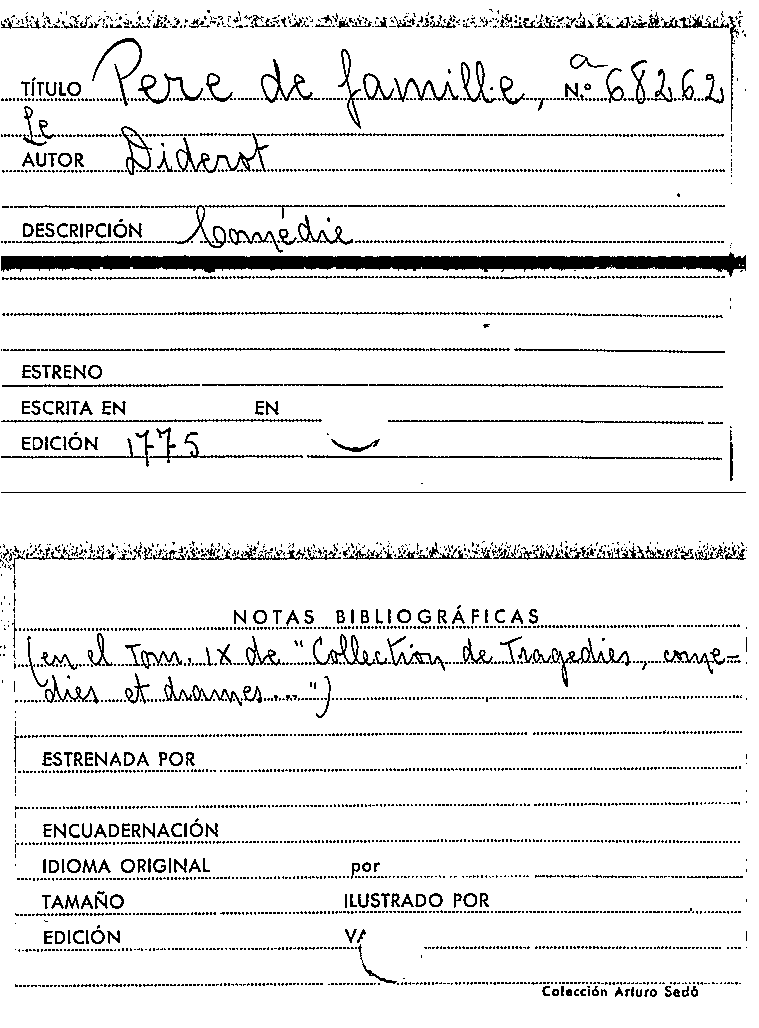 TÍTULO Pere de famille, N.º a 68262
Le
AUTOR Diderot
DESCRIPCIÓN Comédie
ESTRENO
ESCRITA EN EN
EDICIÓN 1775
NOTAS BIBLIOGRÁFICAS
(en el Tom. IX de "Collection de Tragedies, come-
dies et drames...")
ESTRENADA POR
ENCUADERNACIÓN
IDIOMA ORIGINAL por
TAMAÑO ILUSTRADO POR
EDICIÓN
Colección Arturo Sedó